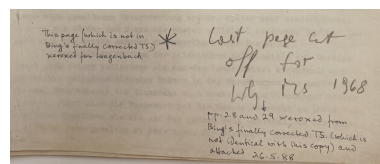 This page (which is not in
Bing's finally corrected TS.)
xeroxed for Langenbuch
Last page cut
off for
MS 1968
pp. 28 and 29 xeroxed from
Bing's finally corrected TS. (which is
not identical with this copy) and
attached 26.5.88